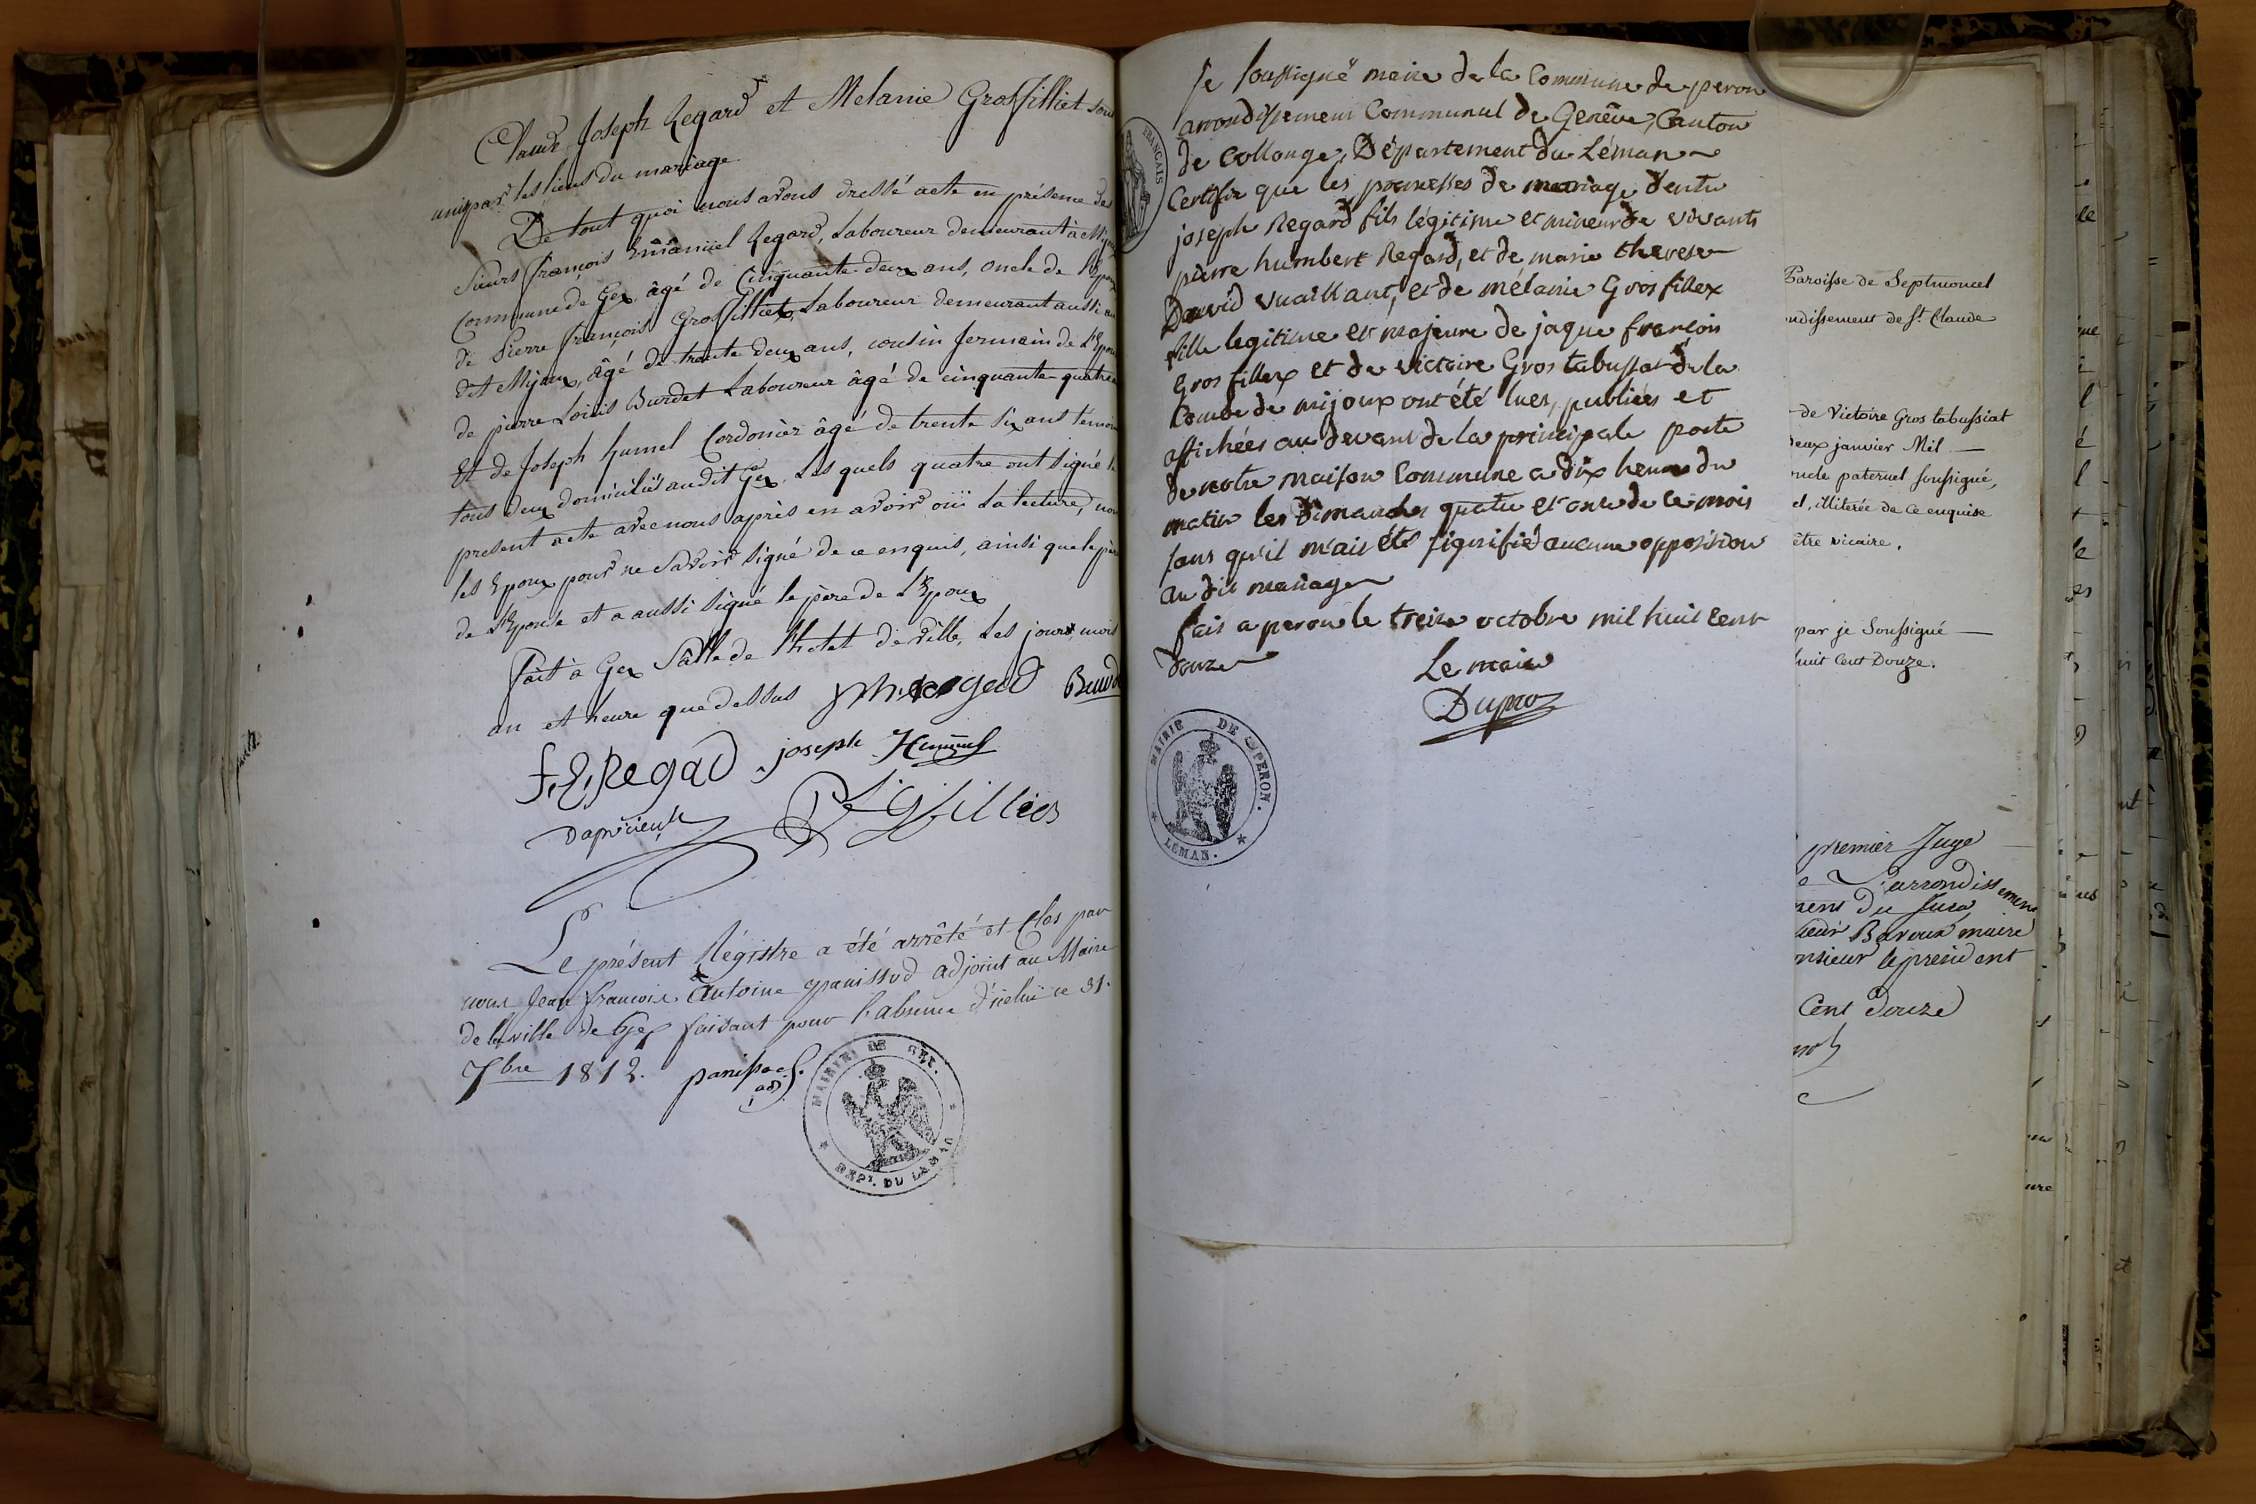 Claude Joseph Regard et Melanie Grosfilliet sont
unis par les liens du mariage
De tout quoi nous avons dressé acte en présence des
Sieurs françois Emanüel Regard, Laboureur demeurant à Mijoux
Commune de Gex âgé de Cinquante deux ans, oncle de l'Epoux
de Pierre françois Grosfilliet, Laboureur demeurant aussi au
dit Mijoux, âgé de trente deux ans, cousin germain de l'Epouse
de pierre Loüis Burdet Laboureur âgé de cinquante quatre
Et de Joseph humel Cordonier âgé de trente Six ans témoins
tous deux domiciliés audit Gex, Les quels quatre ont signé le
present acte avec nous après en avoir oüi La lecture, non
les Epoux pour ne Savoir signé de ce enquis, ainsi que le père
de l'Epouse et a aussi signé le père de l'Epoux
fait à Gex Sâlle de l'hotel de ville, Les jour, mois
an et heure que dessus Burdet
f. E. Regad joseph Humel
Le présent Régistre a été arrêté et Clos par
nous Jean françois Antoine panissod adjoint au Maire
de la ville de Gex faisant pour l'absence d'icelui ce 31.
7bre 1812. panissod
adj.
MAIRIE DE GEX.
DEPT. DU LEMAN
FRANÇAIS
Je soussigné maire de la Commune de peron
arrondissement Communal de Genêve, Canton
de Collonge, Département du Léman
Certifie que les promesses de mariage d'entre
joseph Regard fils légitime et mineur de vivants
pierre humbert Regard, et de marie therese
David vuaillant, et de mélanie Gros fillex
fille legitime et majeure de jaque françois
Gros fillex et de victoire Gros tabussat de la
Combe de mijoux ont été lues, publiées et
affichées au devant de la principale porte
de notre maison Commune a dix heures du
matin les Dimanches quatre et onze de ce mois
sans qu'il m'ait été signifié aucune opposition
au dit mariage
fait a peron le treize octobre mil huit cent
douze Le maire
MAIRIE DE PERON.
LEMAN.
Paroisse de Septmoncel
ndissement de St. Claude
de Victoire Gros tabussiat
deux janvier Mil
oncle paternel soussigné,
et, illiterée de ce enquise
être vicaire.
par je Soussigné
huit Cent Douze.
premier Juge
L'arrondissement
ment du Jura
sieur Bavoux maire
onsieur le président
Cent douze